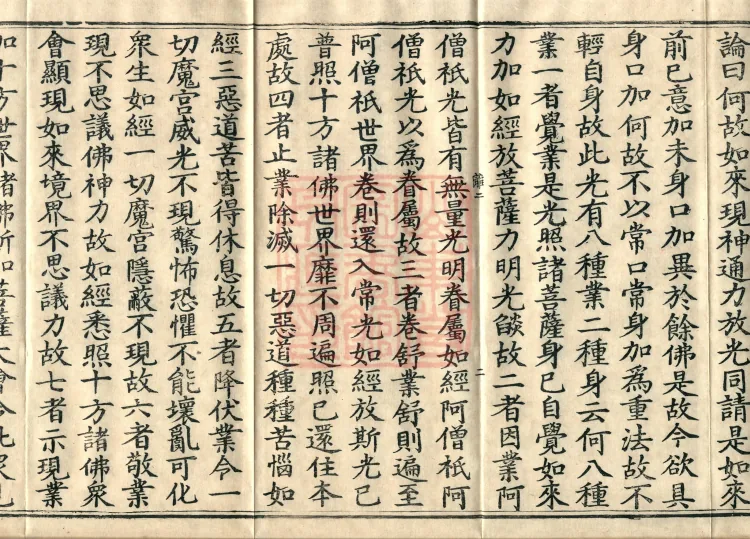 論曰何故如來現神通力放光同請是如來
前已意加未身口加異於餘佛是故今欲具
身口加何故不以常口常身加爲重法故不
輕自身故此光有八種業二種身云何八種
業一者覺業是光照諸菩薩身已自覺如來
力加如經放菩薩力明光燄故二者因業阿
二
僧祇光皆有無量光明眷屬如經阿僧祇阿
僧祇光以爲眷屬故三者卷舒業舒則遍至
阿僧祇世界卷則還入常光如經放斯光已
普照十方諸佛世界靡不周遍照已還住本
處故四者止業除滅一切惡道種種苦惱如
經三惡道苦皆得休息故五者降伏業令一
切魔宮威光不現驚怖恐懼不能壞亂可化
衆生如經一切魔宮隱蔽不現故六者敬業
現不思議佛神力故如經悉照十方諸佛衆
會顯現如來境界不思議力故七者示現業
如十方世界諸佛所加菩薩大會令此衆見